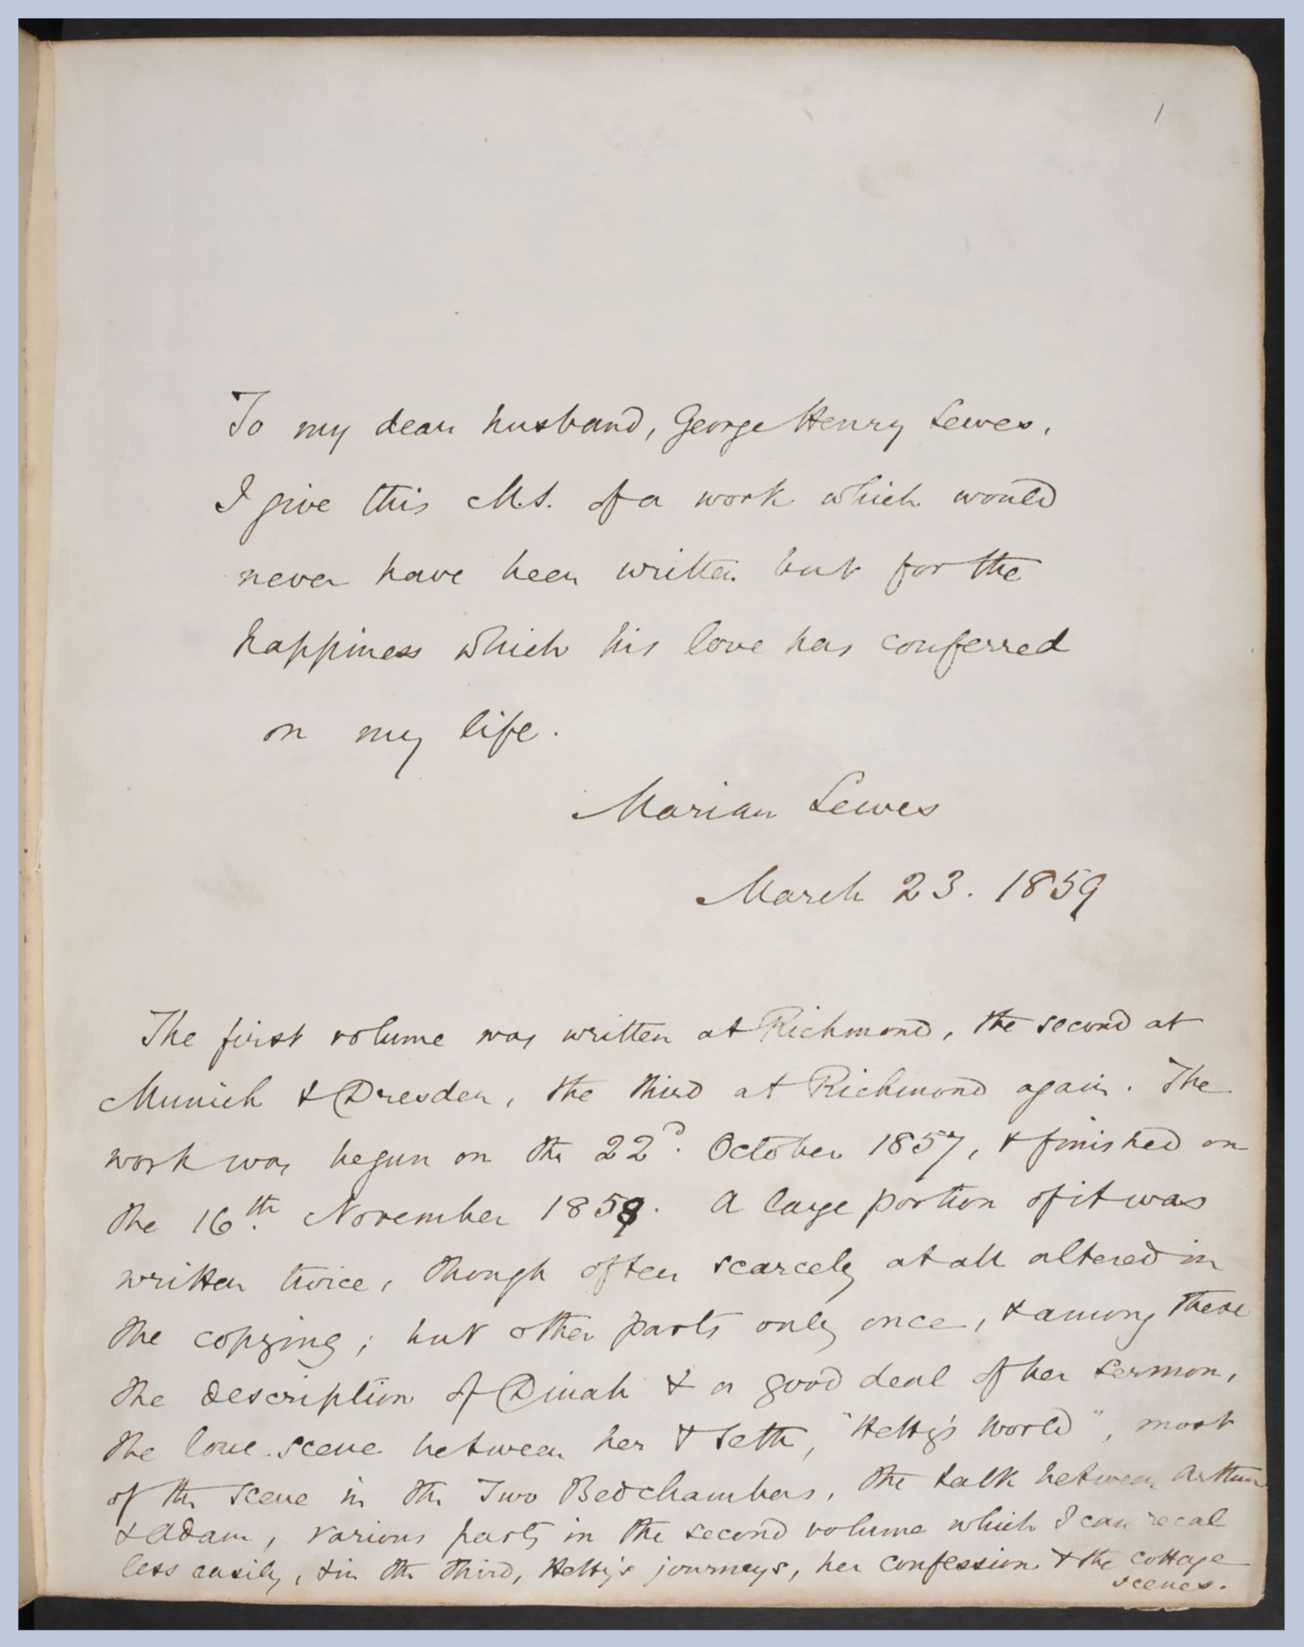 1
To my dear husband, George Henry Lewes,
I give this M.S. of a work which would
never have been written but for the
happiness which his love has conferred
on my life.
Marian Lewes
March 23. 1859
The first volume was written at Richmond, the second at
Munich & Dresden, the third at Richmond again. The
work was begun on the 22d. October 1857, & finished on
the 16th. November 1858. A large portion of it was
written twice, though often scarcely at all altered in
the copying; but other parts only once, & among these
the description of Dinah & a good deal of her sermon,
the love-scene between her & Seth, "Hetty's World", most
of the scene in the Two Bedchambers, the talk between Arthur
& Adam, various parts in the second volume which I can recal
less easily, & in the third, Hetty's journeys, her confession & the cottage
scenes.